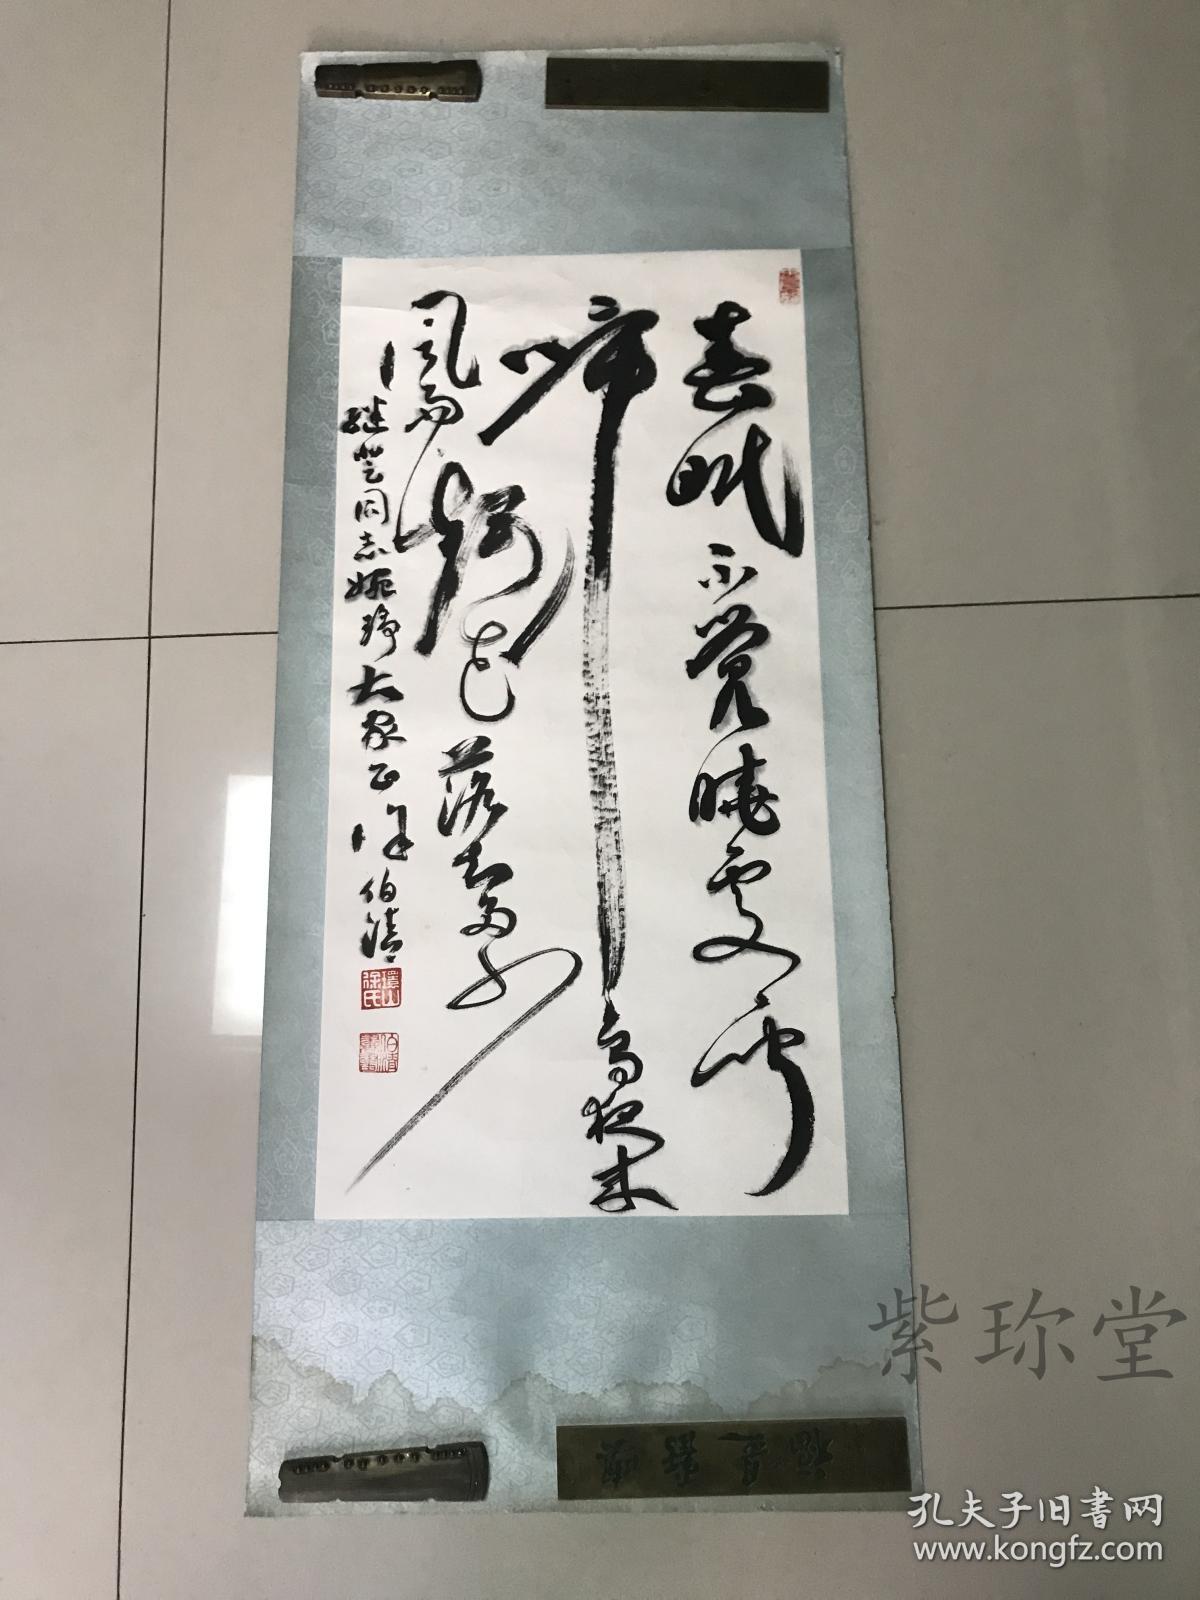 春眠不觉晓处处闻
啼鸟夜来
风雨声花落知多少
同志婉琤大家正 徐伯清
環山徐氏
紫珎堂
孔夫子旧书网
www.kongfz.com